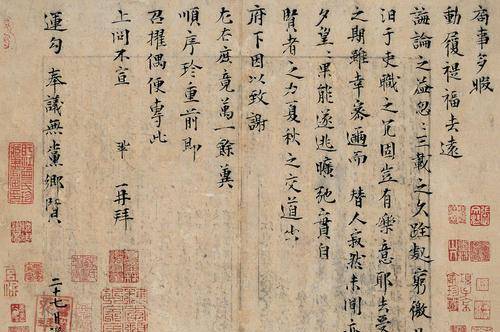 局事多暇
動履禔福去遠
誨論之益忽忽三載之久跧處窮徼
汨于吏職之冗固豈有樂意耶去受
之期雖幸密邇而替人寂然未聞亦
夕望望果能遂逃曠弛實自
賢者之力夏秋之交道出
府下因以致謝
左右庶竟萬一餘冀
順序珍重前即
召擢偶便專此
上問不宣 鞏 再拜
運勾 奉議無黨鄉賢
二十七日